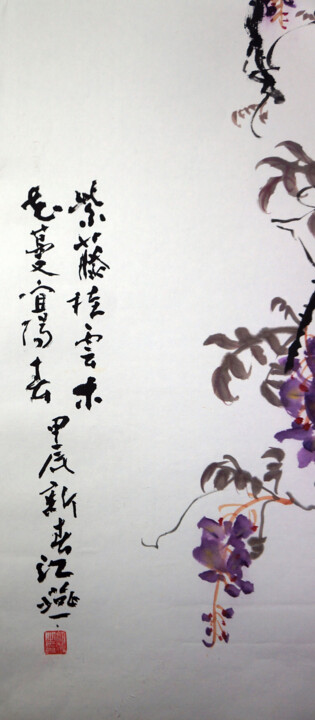 紫藤挂雲木
花蔓宜陽春
甲辰新春江